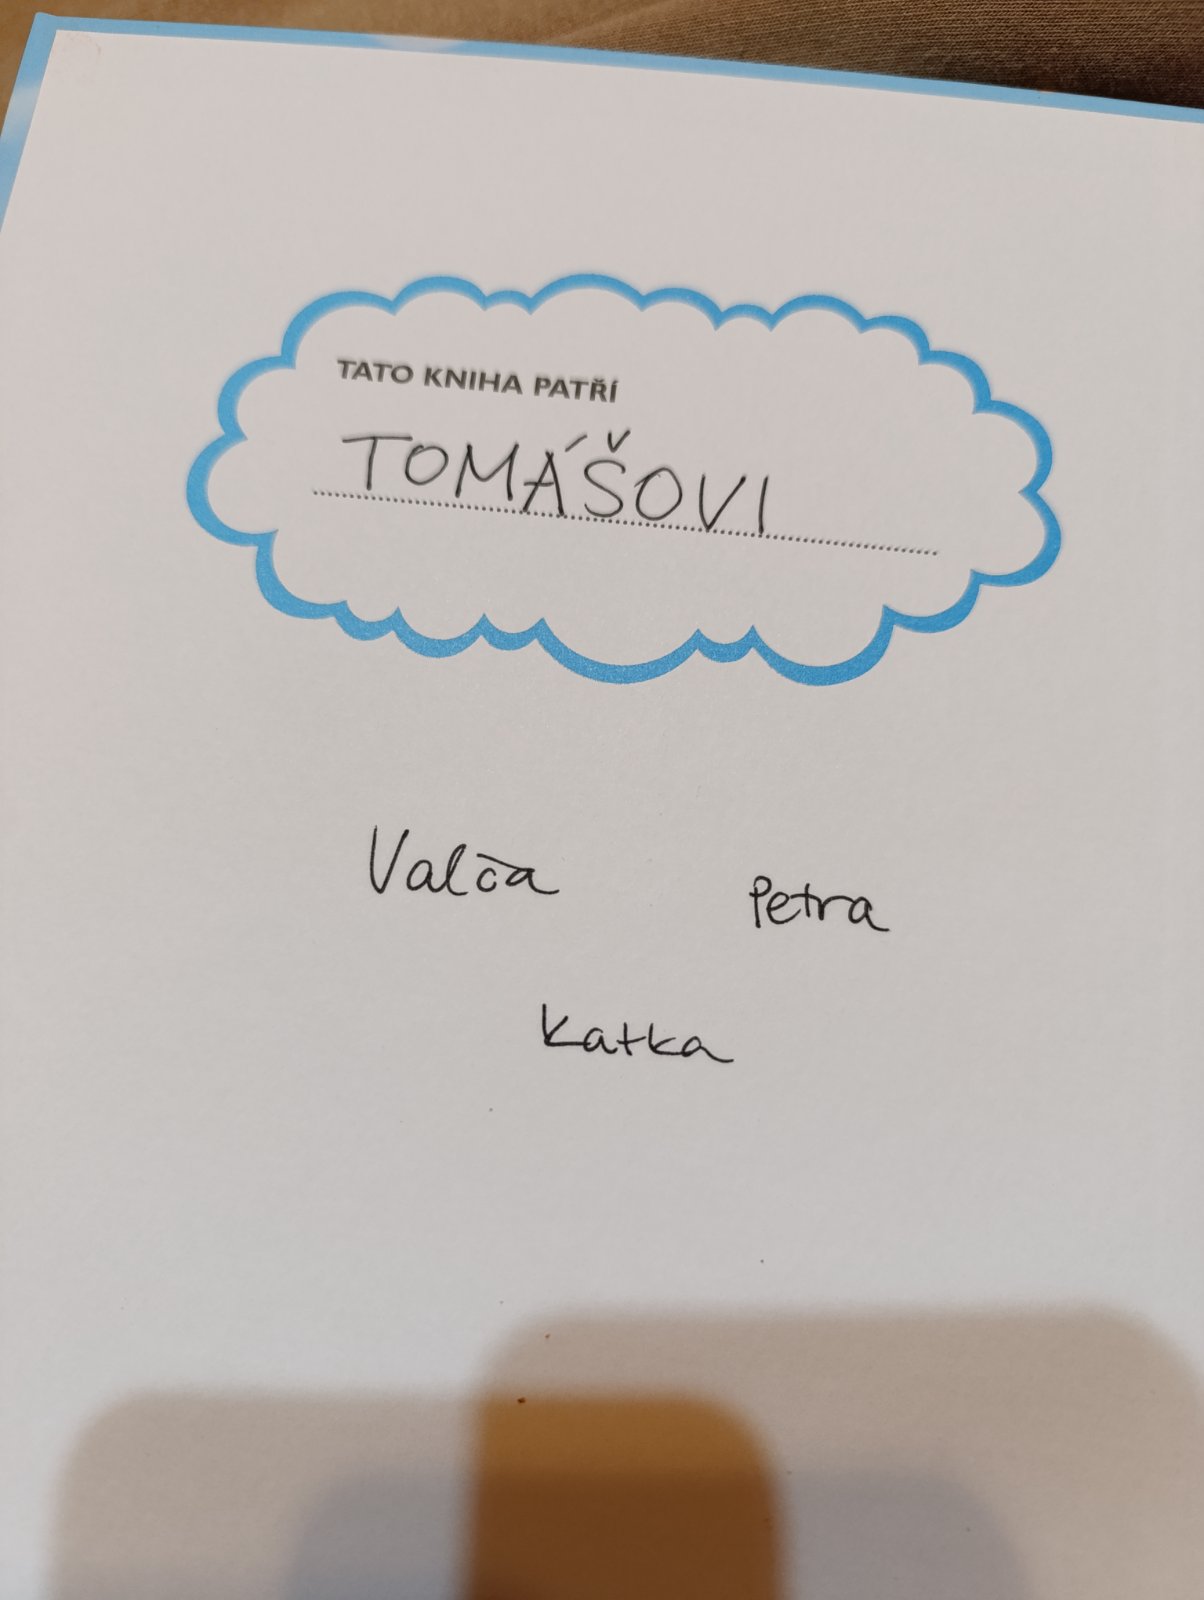 TATO KNIHA PATŘÍ
TOMÁŠOVI
Valča Petra
Katka